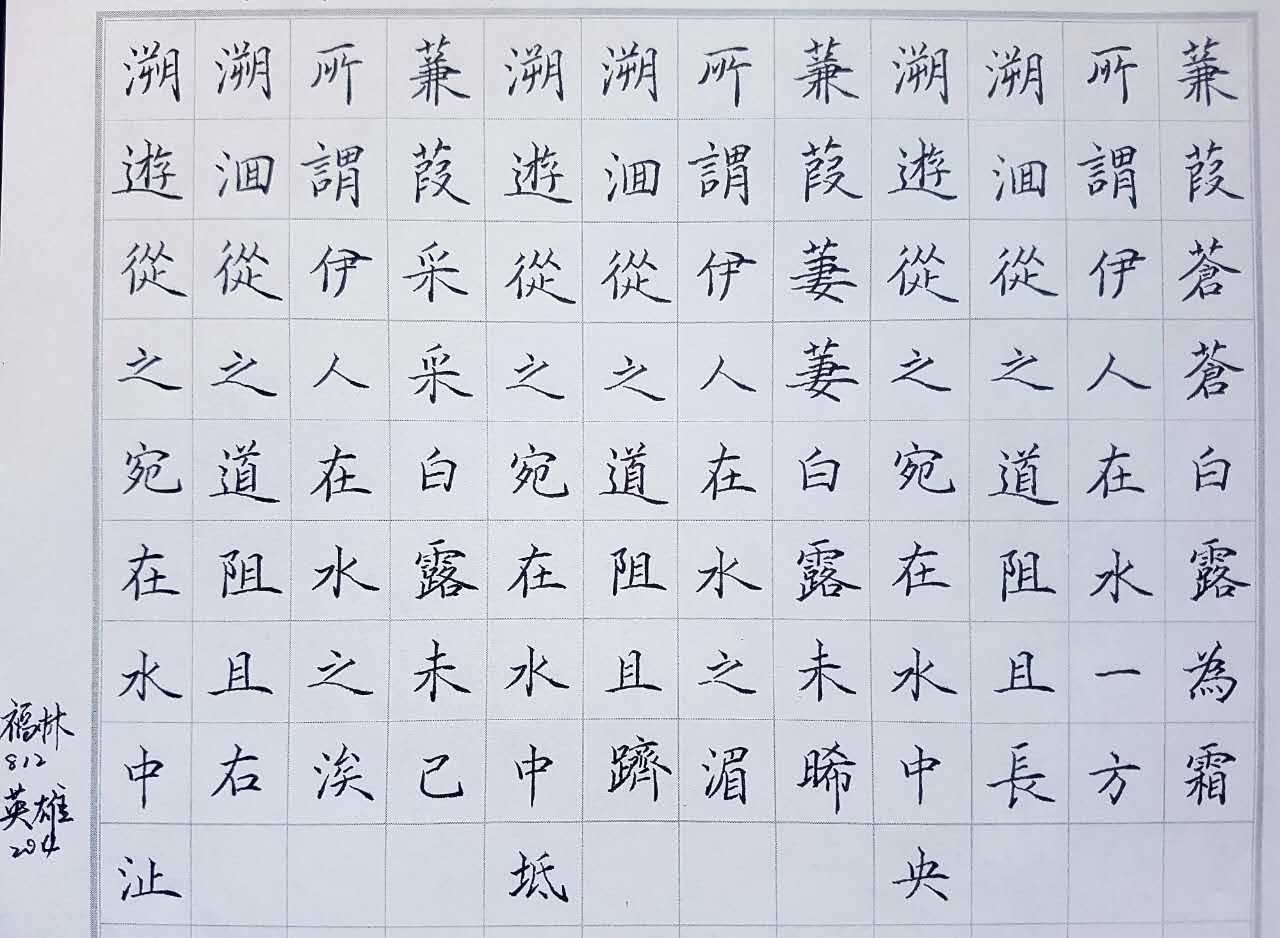 蒹葭蒼蒼白露為霜
所謂伊人在水一方
溯洄從之道阻且長
溯遊從之宛在水中央
蒹葭萋萋白露未晞
所謂伊人在水之湄
溯洄從之道阻且躋
溯遊從之宛在水中坻
蒹葭采采白露未已
所謂伊人在水之涘
溯洄從之道阻且右
溯遊從之宛在水中沚
福林
812
英雄
204